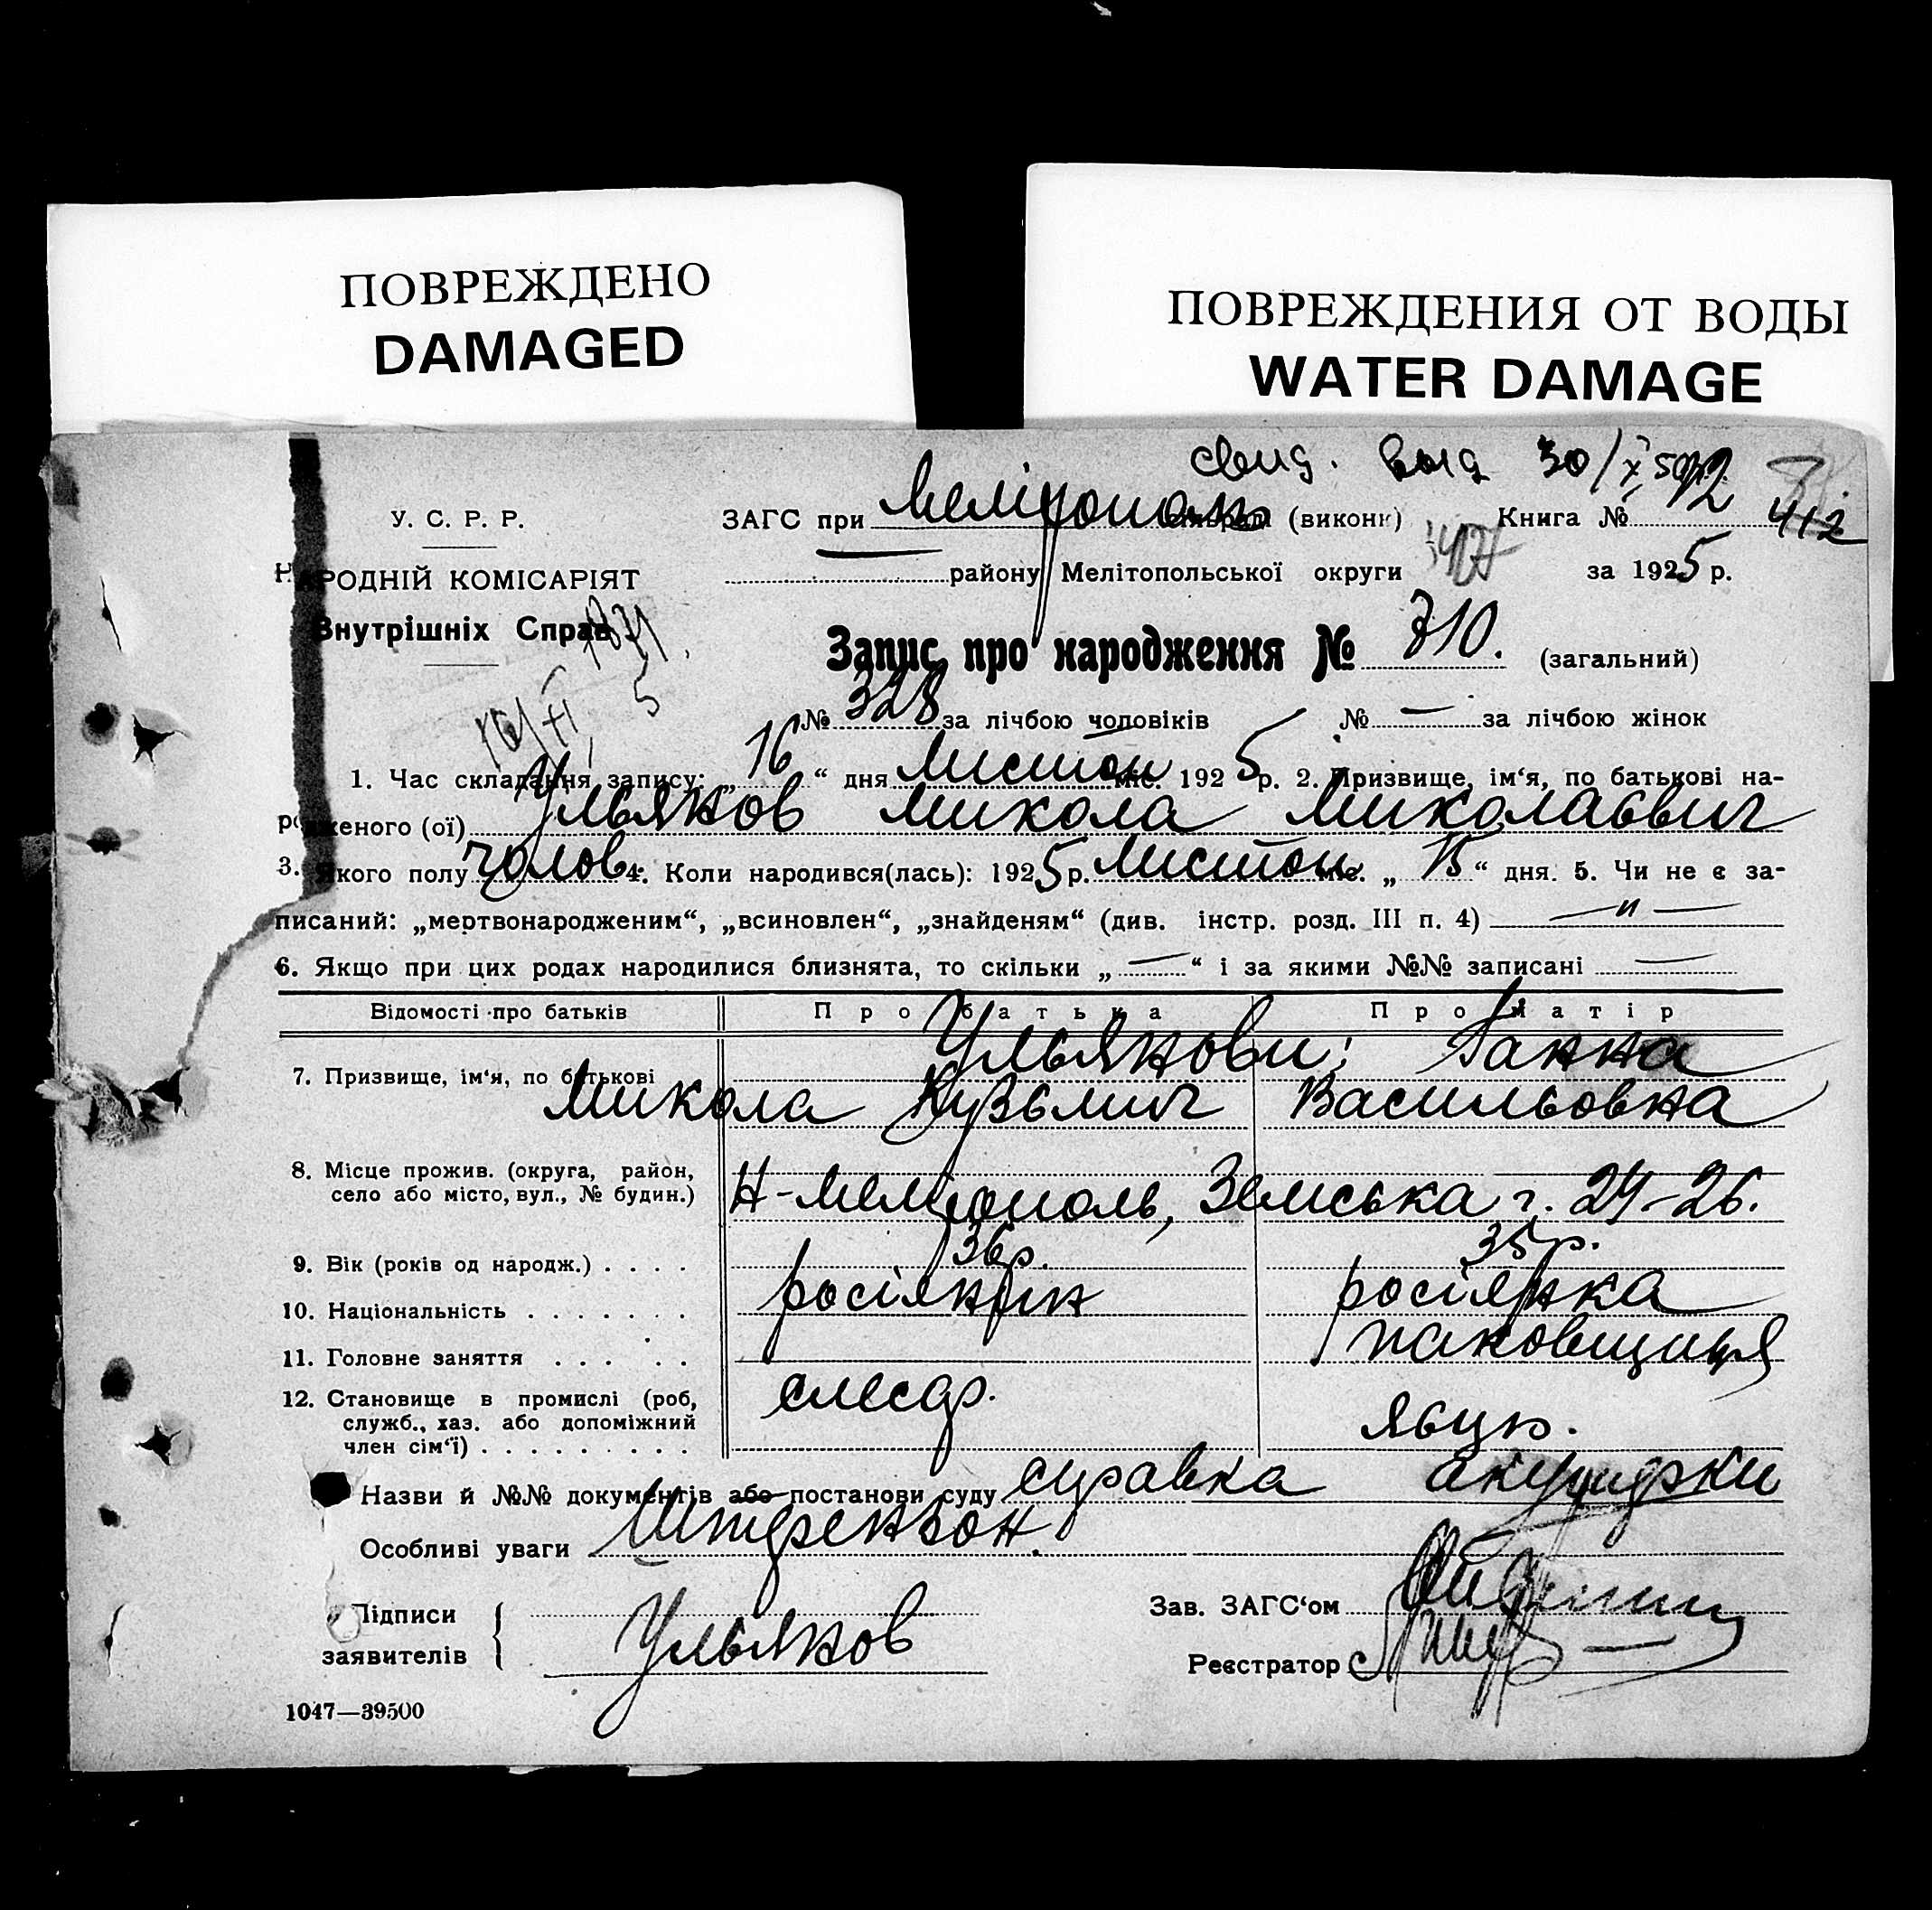 ПОВРЕЖДЕНО
DAMAGED
ПОВРЕЖДЕНИЯ ОТ ВОДЫ
WATER DAMAGE
свид. выд 30/X
У. С. Р. Р.
ЗАГС при Мелітополь (викон Книга № 12 412
НАРОДНІЙ КОМІСАРІЯТ
району Мелітопольської округи за 1925 р.
Внутрішніх Справ
Запис про народження № 710. (загальний)
№ 328 за лічбою чоловіків № — за лічбою жінок
16/XI 5
1. Час складання запису: „ 16 “ дня Листоп міс. 1925 р. 2. Призвище, ім‘я, по батькові на-
родженого (ої) Ульянов Микола Миколаєвич
3. Якого полу чолов. 4. Коли народився(лась): 1925 р. Листоп міс. „ 15 “ дня. 5. Чи не є за-
писаний: „мертвонародженим“, „всиновлен“, „знайденям“ (див. інстр. розд. III п. 4) — „ —
6. Якщо при цих родах народилися близнята, то скільки „ — “ і за якими №№ записані —
Відомості про батьків Про батька Про матір
7. Призвище, ім‘я, по батькові Ульянови: Ганна
Микола Кузьмич Васильовна
8. Місце прожив. (округа, район,
село або місто, вул., № будин.) Н-Мелітополь, Земська 24-26.
9. Вік (років од народж.) . . . . 36 р. 35 р.
10. Національність . . . . . . . росіянин росіянка
11. Головне заняття . . . . . паковщиця
12. Становище в промислі (роб,
служб., хаз. або допоміжний
член сім‘ї) . . . . . . . . . слесар. яєцк.
Назви й №№ документів або постанови суду справка акушерки
Особливі уваги Штрензон.
Підписи
заявителів { Ульянов
Зав. ЗАГС‘ом
Реєстратор
1047—39500